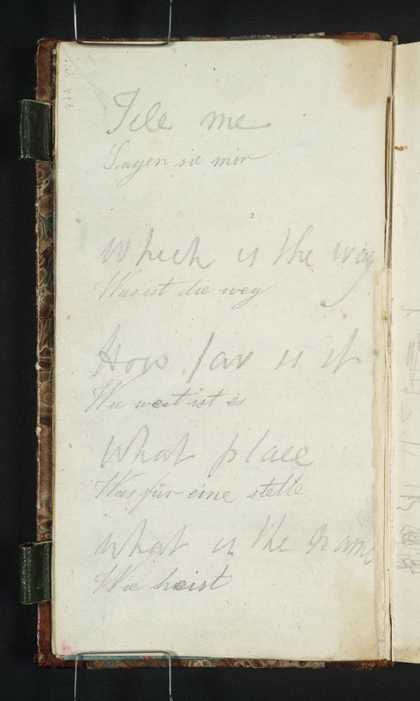 Tele me
Sagen sie mir
which is the way
Was ist die weg
How far is it
Wie weit ist es
What place
Was für eine stelle
what is the name
Wie heist